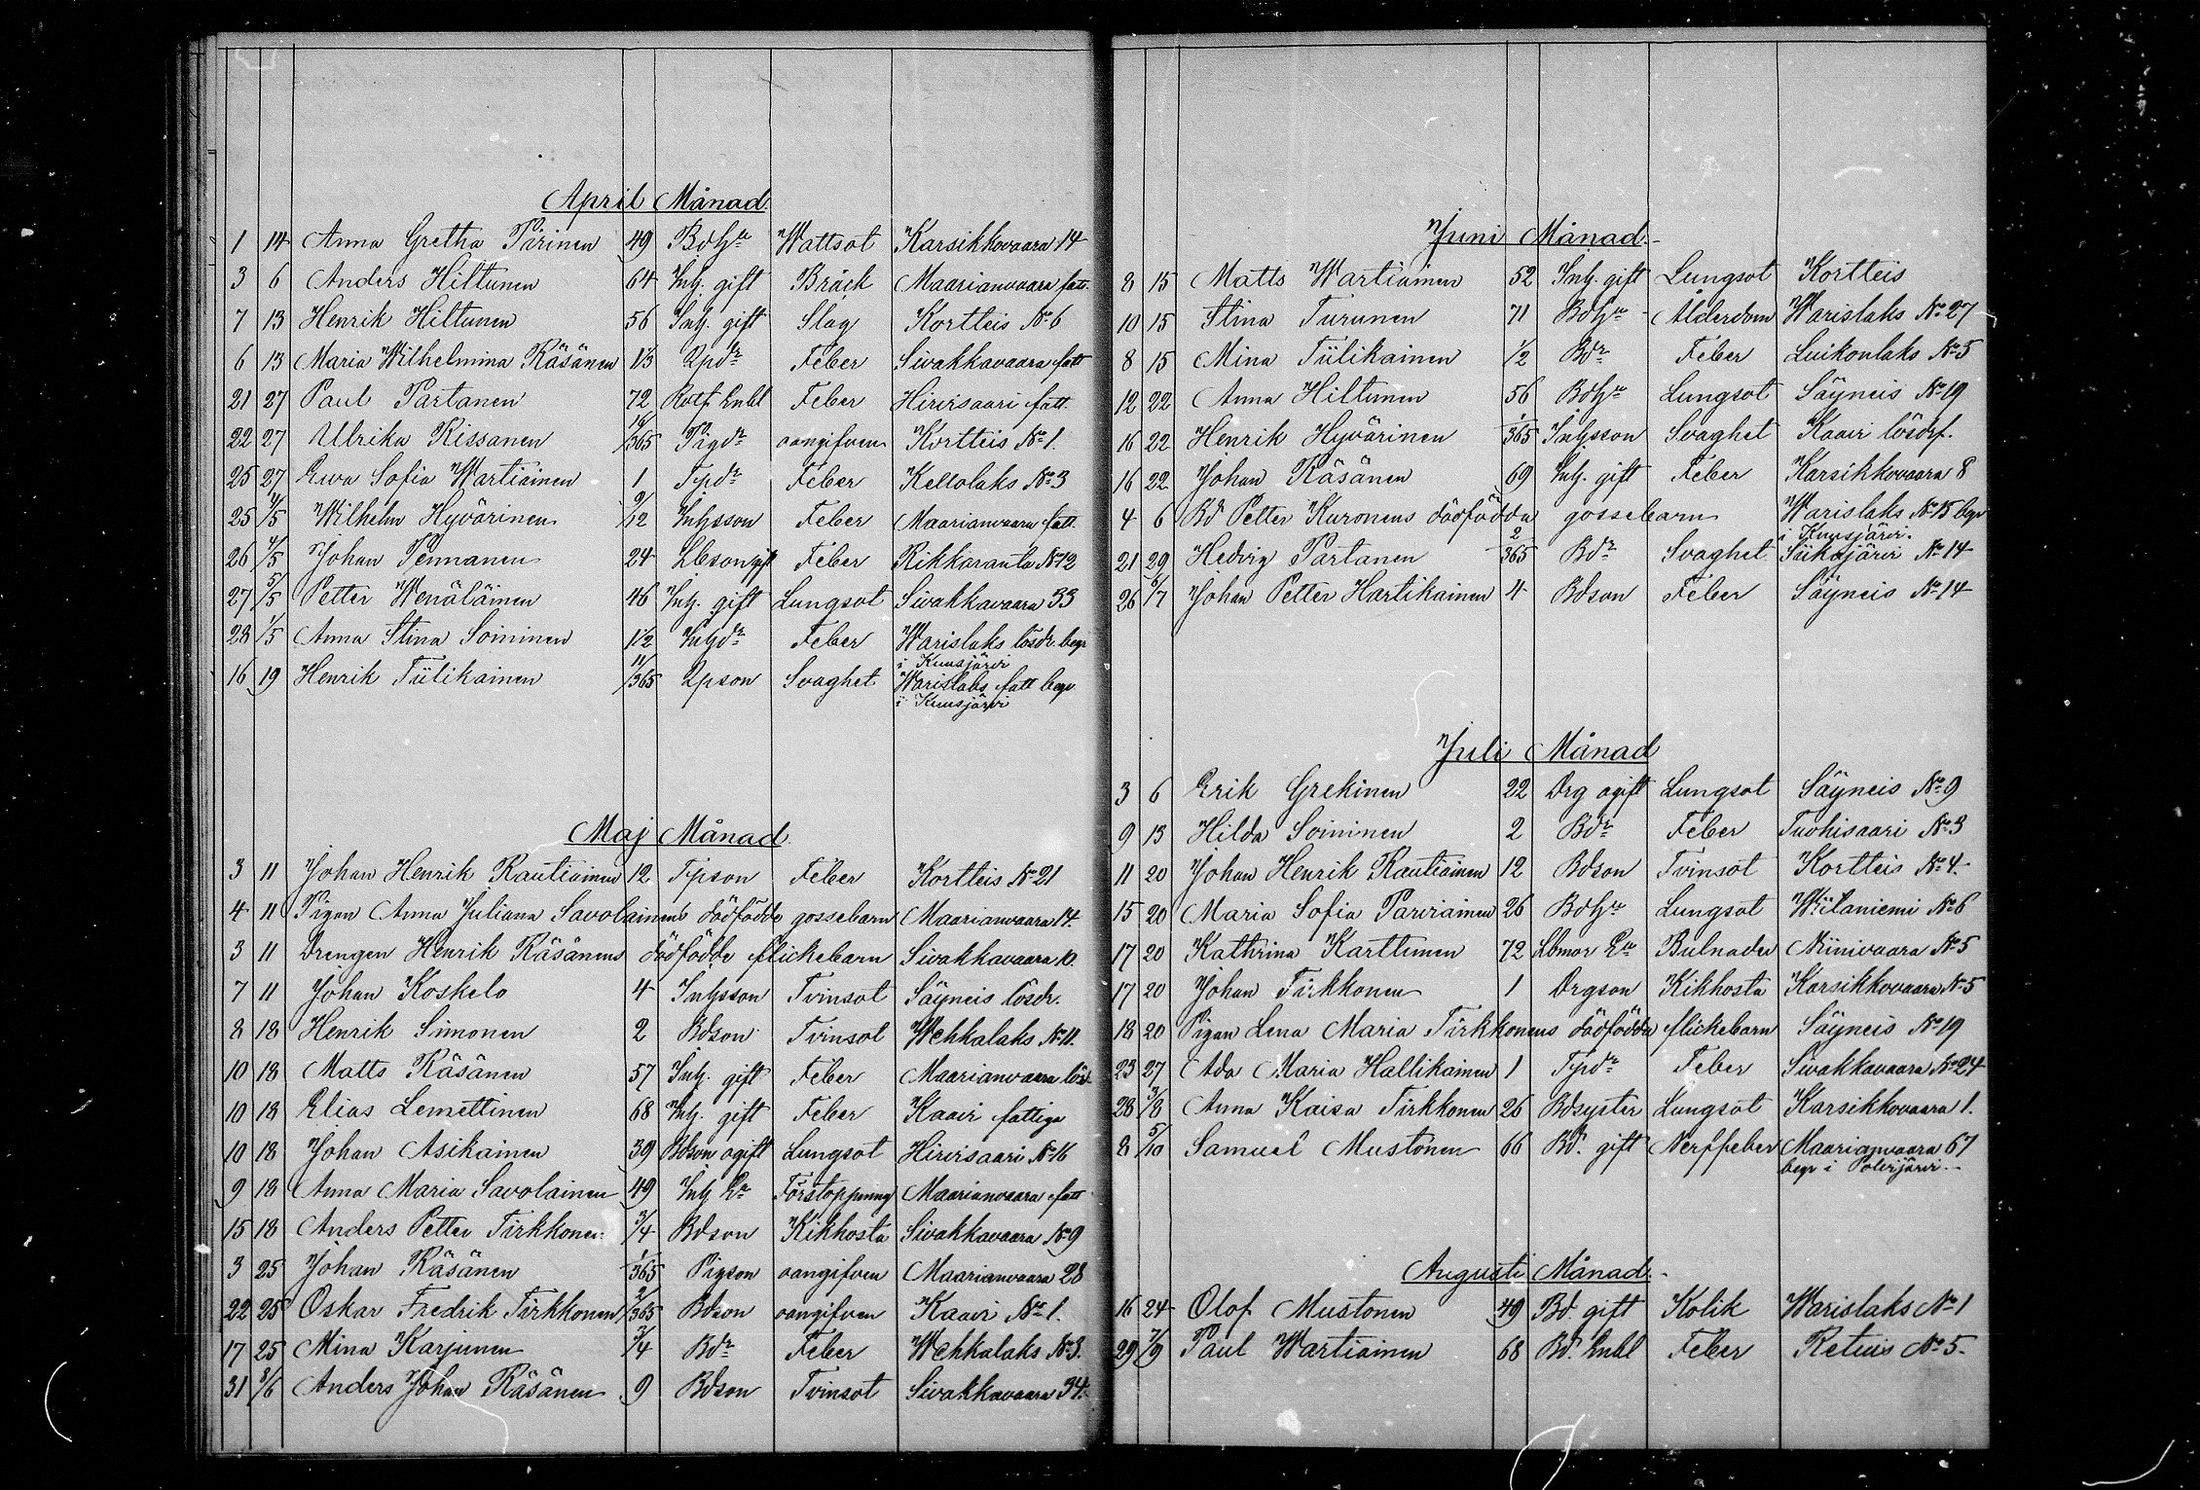 April Månad.
1 14 Anna Gretha Piirinen 49 Bdhu Wattsot Karsikkovaara 14
3 6 Anders Hiltunen 64 Inh. gift Bråck Maarianvaara fatt.
7 13 Henrik Hiltunen 56 Inh. gift Slag Kortteis No 6
6 13 Maria Wilhelmina Räsänen 1/3 Lpdr Feber Sivakkavaara fatt
21 27 Paul Partanen 72 Rotf. Enkl Feber Hirvisaari fatt.
22 27 Ulrika Kissanen /365 Pigdr oangifven Kortteis No 1.
25 27 Ewa Sofia Wartiainen 1 Typdr Feber Keltolaks No 3
25 4/5 Wilhelm Hyvärinen 9/12 Inhsson Feber Maarianvaara fatt.
26 4/5 Johan Pennanen 24 Lbson gift Feber Rikkaranta No 12
27 5/5 Petter Wenäläinen 46 Inh. gift Lungsot Sivakkavaara 33
28 1/5 Anna Stina Soininen 1/2 Inhdr Feber Warislaks lösdr. begr
i Kuusjärvi
16 19 Henrik Tiilikainen 11/365 Lpson Svaghet Warislaks fatt begr
i Kuusjärvi
Maj Månad.
3 11 Johan Henrik Rautiainen 12 Typson Feber Kortteis No 21
4 11 Pigan Anna Juliana Savolainens dödfödde gossebarn Maarianvaara 14.
3 11 Drengen Henrik Räsänens dödfödde flickebarn Sivakkavaara 10.
7 11 Johan Koskelo 4 Inhsson Tvinsot Säyneis lösdr.
8 18 Henrik Simonen 2 Bdson Tvinsot Wehkalaks No 11.
10 18 Matts Räsänen 57 Inh. gift Feber Maarianvaara lösd
10 18 Elias Lemettinen 68 Inh. gift Feber Kaavi fattiga
10 18 Johan Asikainen 39 Bdson ogift Lungsot Hirvisaari No 16
9 18 Anna Maria Savolainen 49 Inh Ea Förstoppning Maarianvaara fatt
15 18 Anders Petter Tirkkonen 3/4 Bdson Kikhosta Sivakkavaara No 9
3 25 Johan Räsänen 1/365 Pigson oangifven Maarianvaara 28
22 25 Oskar Fredrik Tirkkonen 2/365 Bdson oangifven Kaavi No 1.
17 25 Mina Karjunen 3/4 Bdr Feber Wehkalaks No 3.
31 8/6 Anders Johan Räsänen 9 Bdson Tvinsot Sivakkavaara 34.
Juni Månad.
8 15 Matts Wartiainen 52 Inh. gift Lungsot Kortteis
10 15 Stina Turunen 71 Bdhu Ålderdom Warislaks No 27
8 15 Mina Tiilikainen 1/2 Bdr Feber Luikonlaks No 5
12 22 Anna Hiltunen 56 Bdhu Lungsot Säyneis No 19
16 22 Henrik Hyvärinen 1/365 Inhsson Svaghet Kaavi lösdrf.
16 22 Johan Räsänen 69 Inh. gift Feber Karsikkovaara 8
4 6 Bd Petter Kuronens dödfödda gossebarn Warislaks No 15 begr
i Kuusjärvi.
21 29 Hedvig Partanen 2/365 Bdr Svaghet Siikajärvi No 14
26 6/7 Johan Petter Hartikainen 4 Bdson Feber Säyneis No 14
Juli Månad
3 6 Erik Grekinen 22 Drg ogift Lungsot Säyneis No 9
9 13 Hilda Soininen 2 Bdr Feber Tuohisaari No 3
11 20 Johan Henrik Rautiainen 12 Bdson Tvinsot Kortteis No 4.
15 20 Maria Sofia Parviainen 26 Bdhu Lungsot Wiitaniemi No 6
17 20 Kathrina Karttunen 72 Lbmor Ea Bulnader Niinivaara No 5
17 20 Johan Tirkkonen 1 Drgson Kikhosta Karsikkovaara No 5
18 20 Pigan Lena Maria Tirkkonens dödfödda flickebarn Säyneis No 19
23 27 Ada Maria Hallikainen 1 Typdr Feber Sivakkavaara No 24
28 3/8 Anna Kaisa Tirkkonen 26 Bdsyster Lungsot Karsikkovaara 1.
8 5/10 Samuel Mustonen 66 Bd. gift Nerffeber Maarianvaara 67
begr i Polvijärvi.
Augusti Månad.
16 24 Olof Mustonen 49 Bd. gift Kolik Warislaks No 1
29 7/9 Paul Wartiainen 68 Bd. Enkl Feber Retuis No 5.